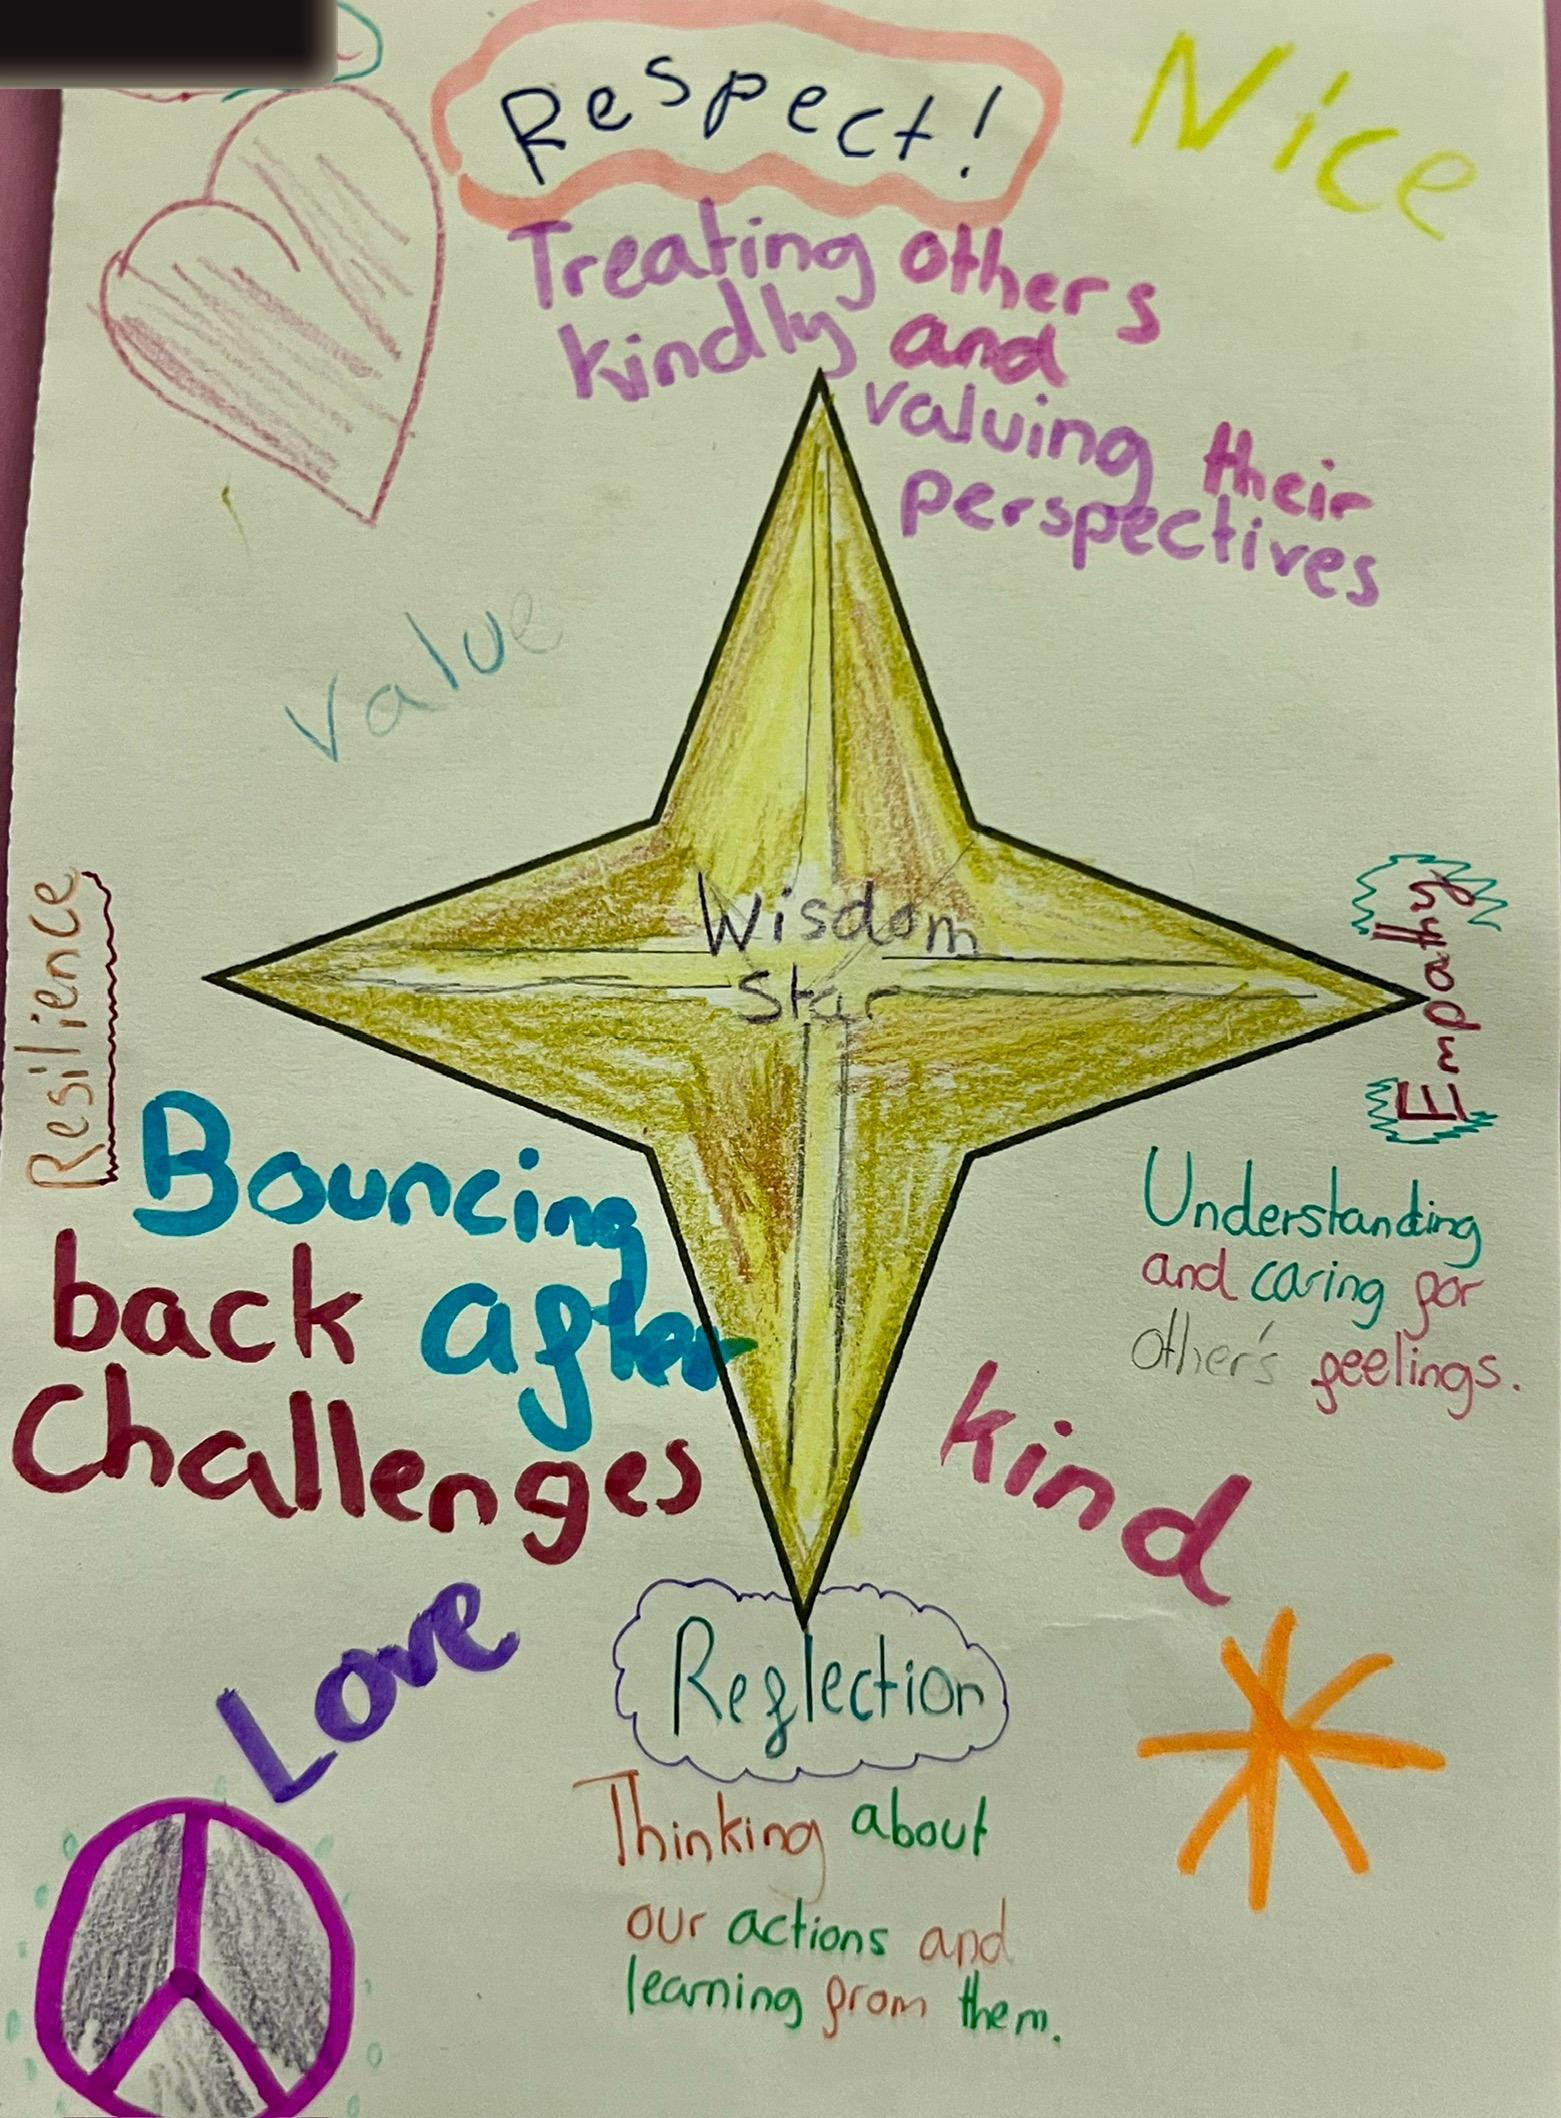 Respect!
Nice
Treating others
kindly and
valuing their
perspectives
value
Wisdom
Star
Resilience
Bouncing
back after
Challenges
Empathy
Understanding
and caring for
other's feelings.
kind
Love
Reflection
Thinking about
our actions and
learning from them.